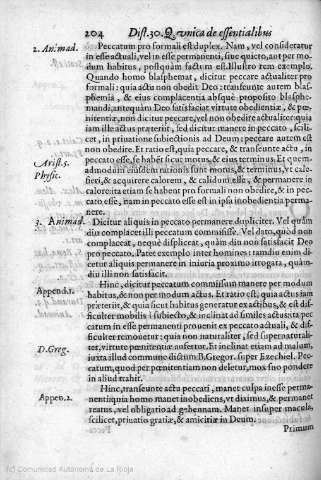 204 Dist. 30. Q. vnica de essentialibus
2. Animad.
Peccatum pro formali est duplex. Nam, vel consideratur
in esse actuali, vel in esse permanenti, siue quieto, aut per mo-
dum habitus, postquàm factum est. Illustro rem exemplo.
Quando homo blasphemat, dicitur peccare actualiter pro
formali: quia actu non obedit Deo: transeunte autem blas-
phemia, & eius complacentia absque proposito blasphe-
mandi, antequàm Deo satisfaciat virtute obedientiæ, & pœ-
nitentiæ, non dicitur peccare, vel non obedire actualiter: quia
iam ille actus præteriit, sed dicitur manere in peccato, scili-
cet, in priuatione subiectionis ad Deum: peccare autem est
non obedire. Et ratio est, quia peccare, & transeunte actu, in
Arist. 5.
Physic.
peccato esse, se habet sicut motus, & eius terminus. Et quem-
admodum eiusdem rationis sunt motus, & terminus, vt cale-
fieri, & acquirere calorem, & calidum esse, & permanere in
calore: ita etiam se habent pro formali non obedire, & in pec-
cato esse, nam in peccato esse est in ipsa inobedientia perma-
nere.
3. Animad.
Dicitur aliquis in peccato permanere dupliciter. Vel quàm
diu complacet illi peccatum commisisse. Vel dato, quòd non
complaceat, nequè displiceat, quàm diu non satisfacit Deo
pro peccato. Patet exemplo inter homines: tamdiu enim di-
cetur aliquis permanere in iniuria proximo irrogata, quàm-
diu illi non satisfacit.
Append. 1.
Hinc, dicitur peccatum commissum manere per modum
habitus, & non per modum actus. Et ratio est, quia actus iam
præteriit, & quia sicut habitus generatur ex actibus, & est dif-
ficulter mobilis à subiecto, & inclinat ad similes actus: ita pec-
catum in esse permanenti prouenit ex peccato actuali, & dif-
ficulter remouetur: quia non naturaliter, sed supernaturali-
ter, virtute pœnitentiæ aufertur. Et inclinat etiam ad malum,
D. Greg.
iuxta illud commune dictum B. Gregor. super Ezechiel. Pec-
catum, quod per pœnitentiam non deletur, mox suo pondere
in aliud trahit.
Appen. 2.
Hinc, transeunte actu peccati, manet culpa in esse perma-
nenti: quia homo manet inobediens, vt diximus, & permanet
reatus, vel obligatio ad gehennam. Manet insuper macula,
scilicet, priuatio gratiæ, & amicitiæ in Deum.
Primum
(c) Comunidad Autónoma de La Rioja